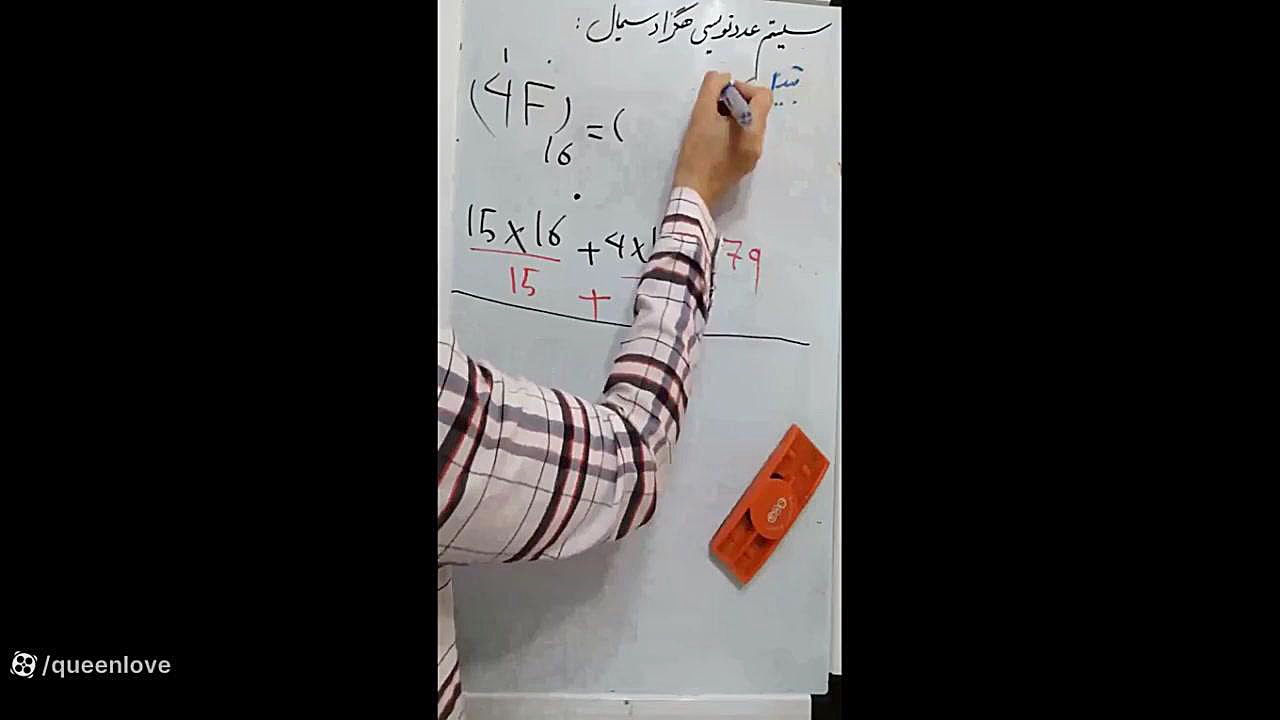 سیستم عددنویسی هگزادسیمال :
1 0
(4F)16 = (
15x16 0 + 4x1 79
15 +
/queenlove